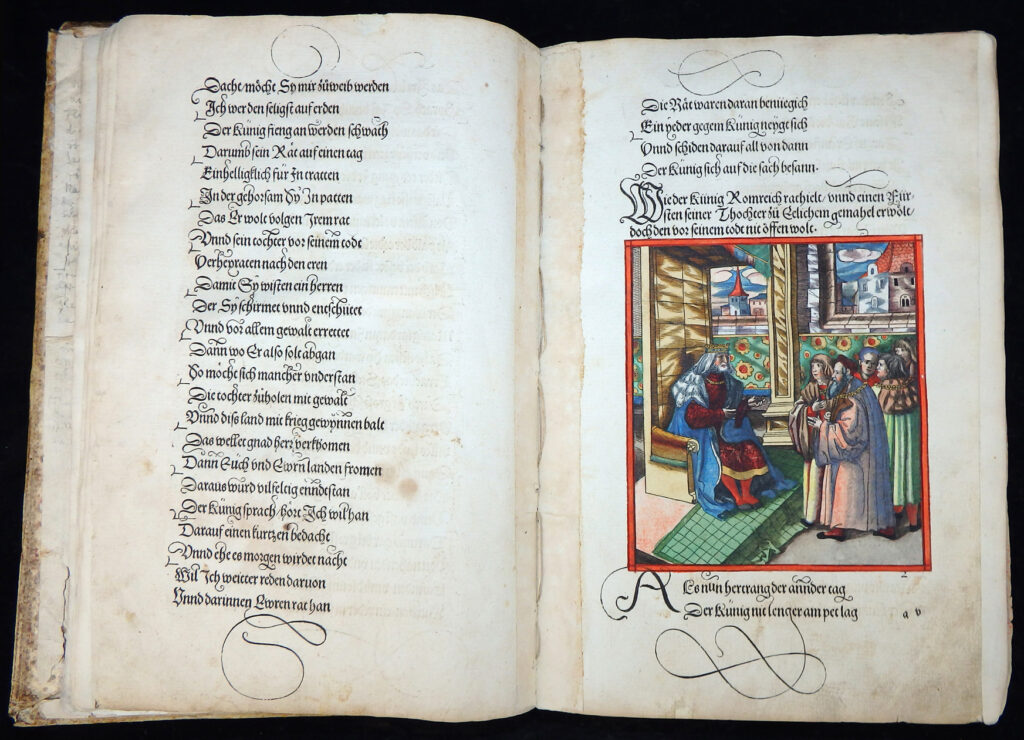 Dacht/ möcht Sy mir zů weib werden
Ich wer den seligst auf erden
Der Künig fieng an werden schwach
Darumb sein Rät auf einen tag
Einhelligklich für In tratten
In der gehorsam Sy In patten
Das Er wolt volgen Irem rat
Vnnd sein tochter vor seinem todt
Verheyraten nach den eren
Damit Sy wisten ein herren
Der Sy schirmet vnnd entschütet
Vnnd vor allem gewalt errettet
Dann wo Er also solt abgan
So möcht sich mancher vnderstan
Die tochter zůholen mit gewalt
Vnnd diss land mit krieg gewynnen balt
Das wellet gnad herr verkhomen
Dann Euch vnd Ewrn landen fromen
Daraus wurd vilfeltig enndtstan
Der Künig sprach/ hört Ich wil han
Darauf einen kurtzen bedacht
Vnnd ehe es morgen wirdet nacht
Wil Ich weitter reden daruon
Vnnd darinnen Ewren rat han
Die Rät waren daran benüegich
Ein yeder gegem Künig neygt sich
Vnnd schiden darauf all von dann
Der Künig sich auf die sach besann.
Wie der Künig Romreich rathielt/ vnnd einen Für-
sten seiner Thochter zů Eelichem gemahel erwölt
doch den vor seinem todt nit öffen wolt.
Als nůn hertrang der annder tag
Der Künig nit lenger am pet lag
a v